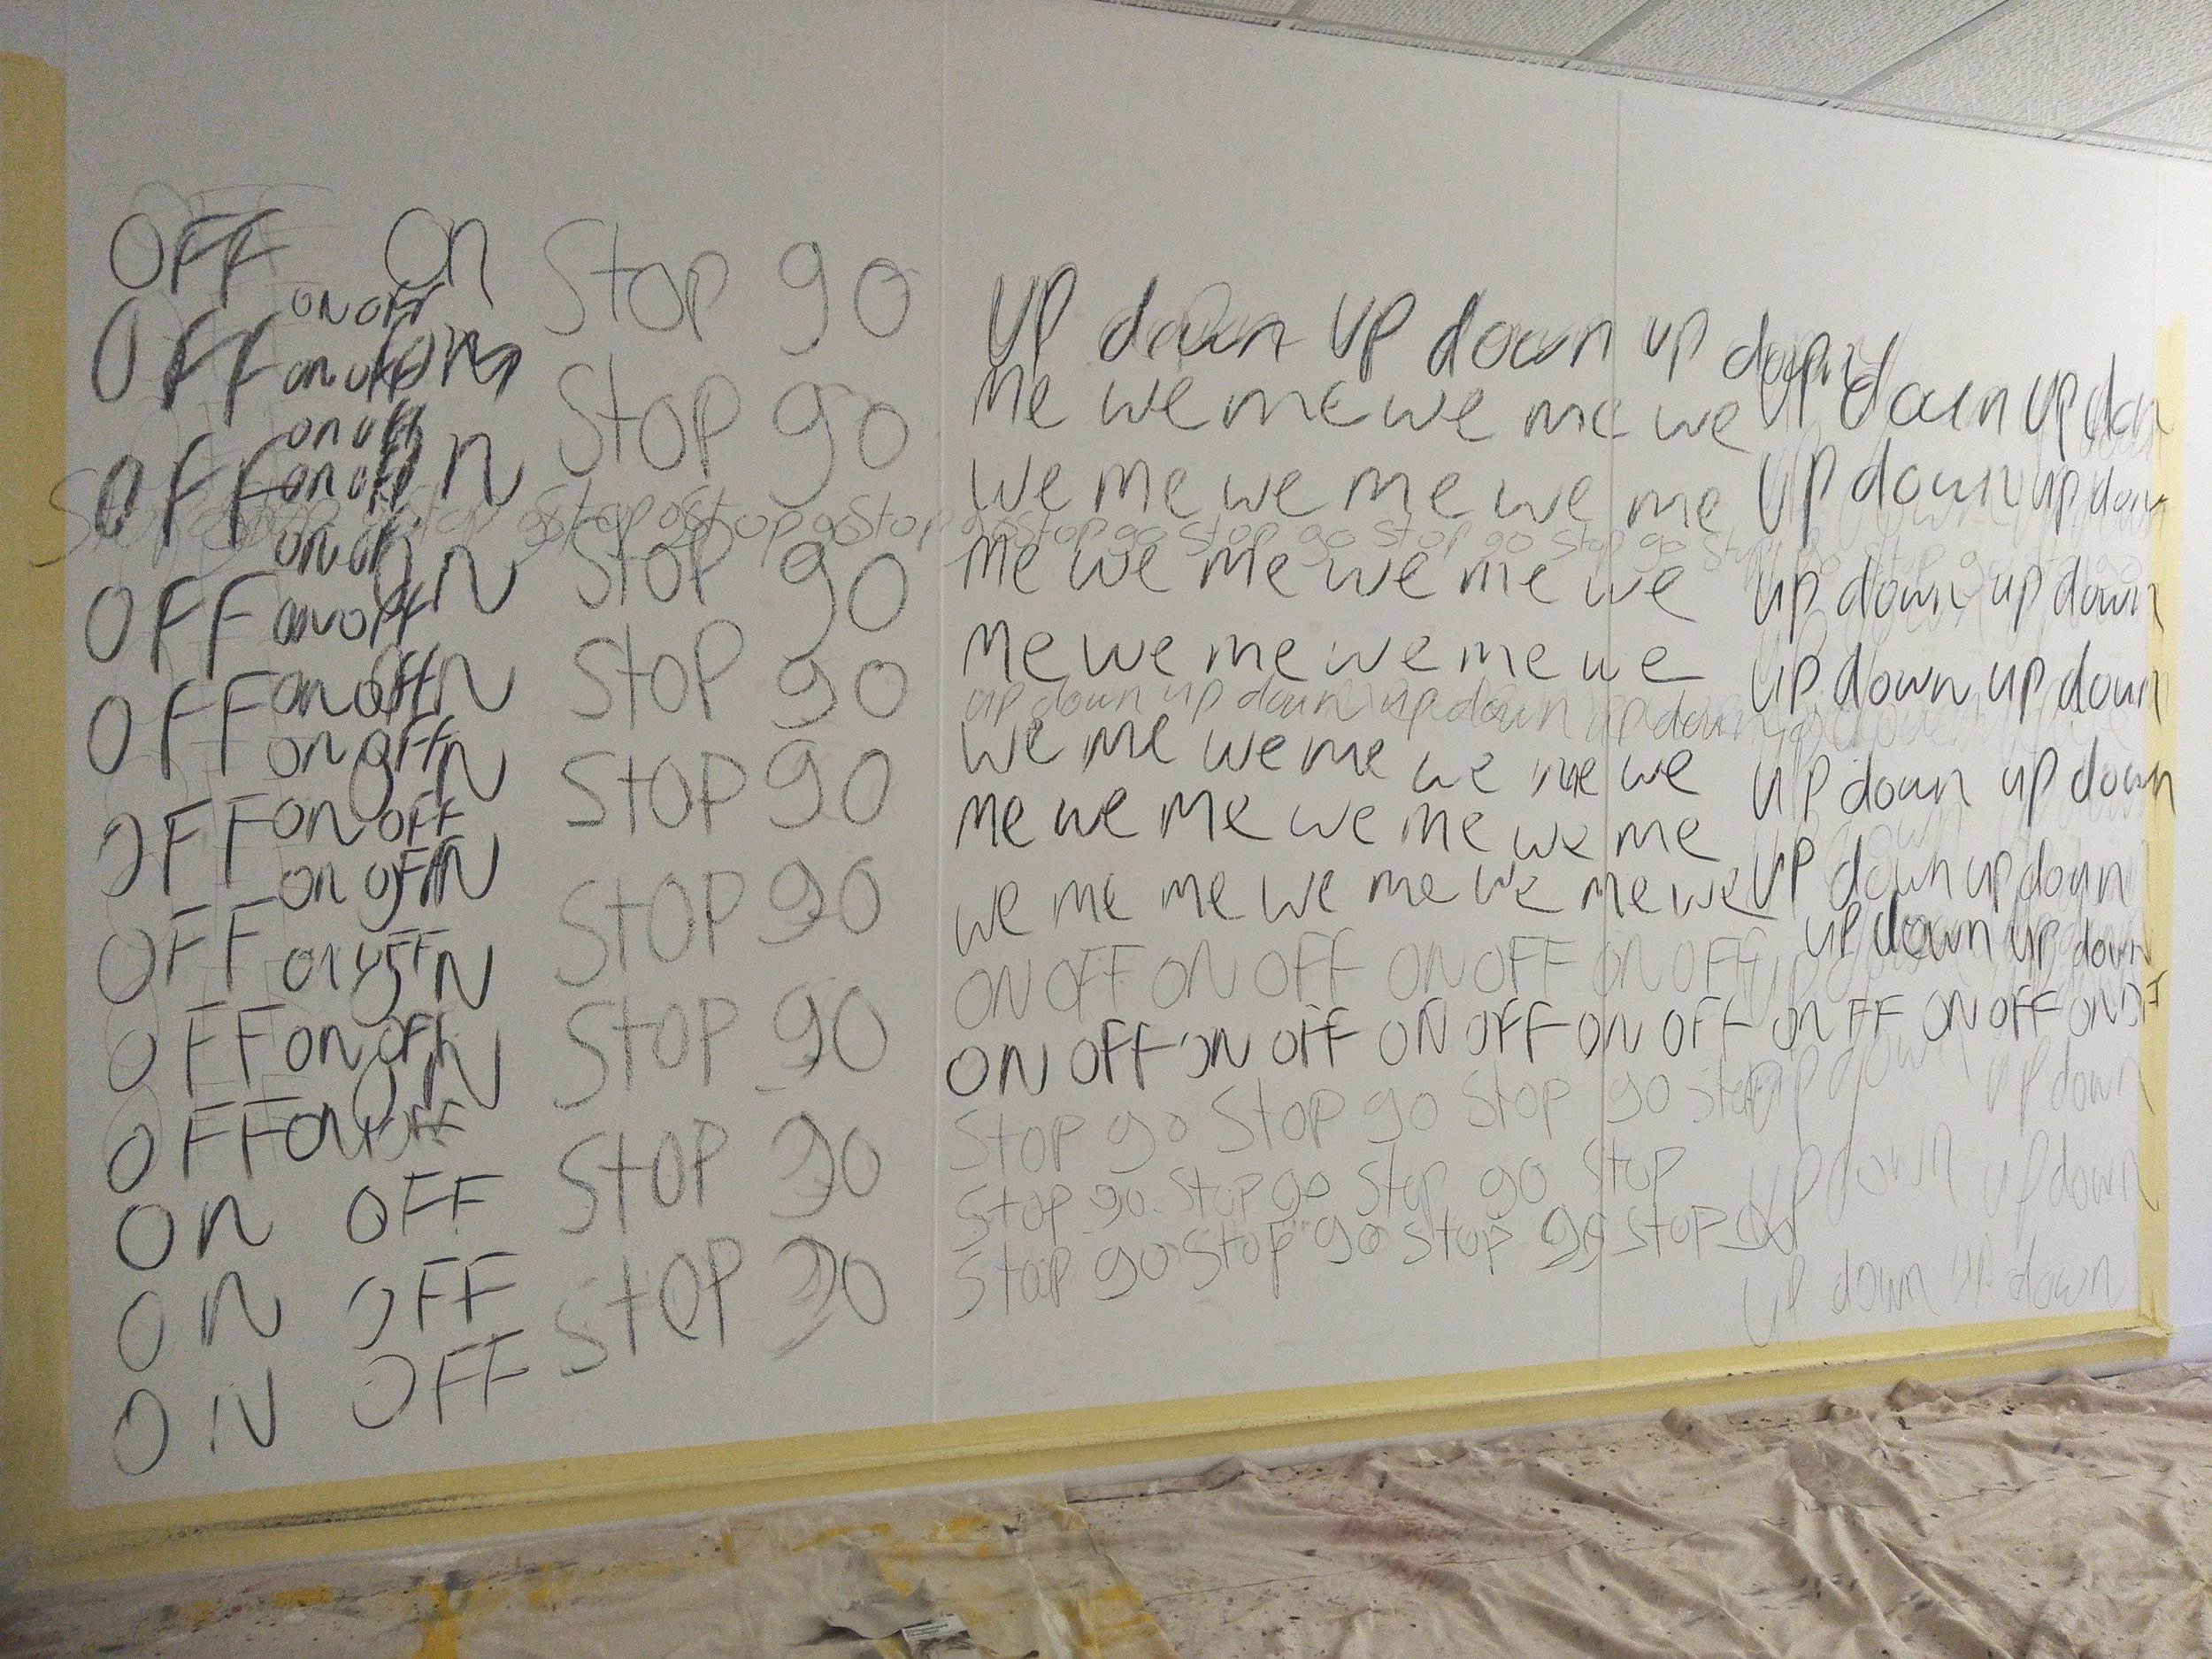 OFF on stop go
on off
OFF on off
on off
OFF on off n
on off
OFF on off N
OFF on off N
on off N
OFF on off
on off N
OFF on off N
OFF on off
OFF on off
on OFF
ON OFF
ON OFF
stop go
stop go
stop go
stop go
stop go
stop go
stop go
stop go
up down up down up down
me we me we me we
we me we me we me
stop go stop go stop go stop go stop
me we me we me we
me we me we me we
up down up down up down up down
we me we me we me we
me we me we me we me
we me me we me we me we
ON OFF ON OFF ON OFF ON OFF
ON OFF ON OFF ON OFF ON OFF ON FF ON OFF ON
stop go stop go stop go stop
stop go stop go stop go stop
stop go stop go stop go stop go
up down up dan
up down up down
up down up down
up down up down
up down up down
up down up down
up down up down
up down up down
up down up down
up down up down